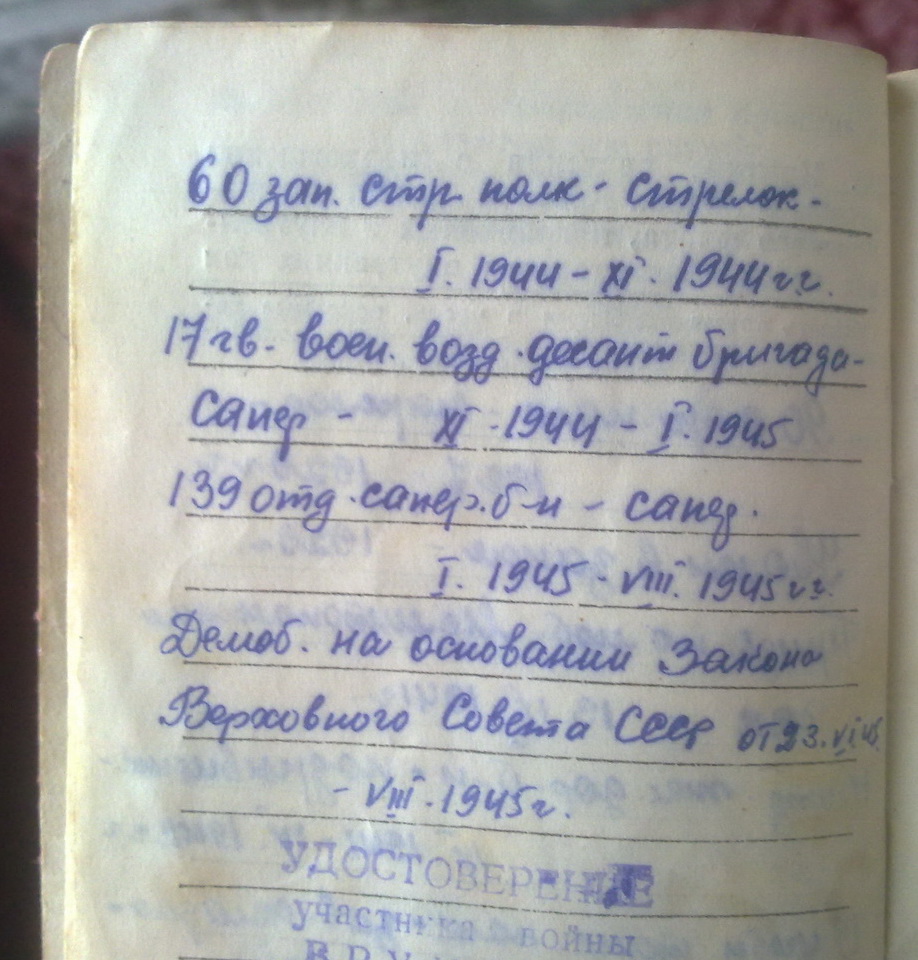 60 зап. стр. полк - стрелок -
I. 1944 - XI. 1944 г.г.
17 гв. воен. возд. десант бригада -
сапер - XI. 1944 - I. 1945
139 отд. сапер. б-н - сапер.
I. 1945 - VIII. 1945 г.г.
Демоб. на основании Закона
Верховного Совета СССР от 23.VI.45
- VIII. 1945 г.
УДОСТОВЕРЕНИЕ
участника войны